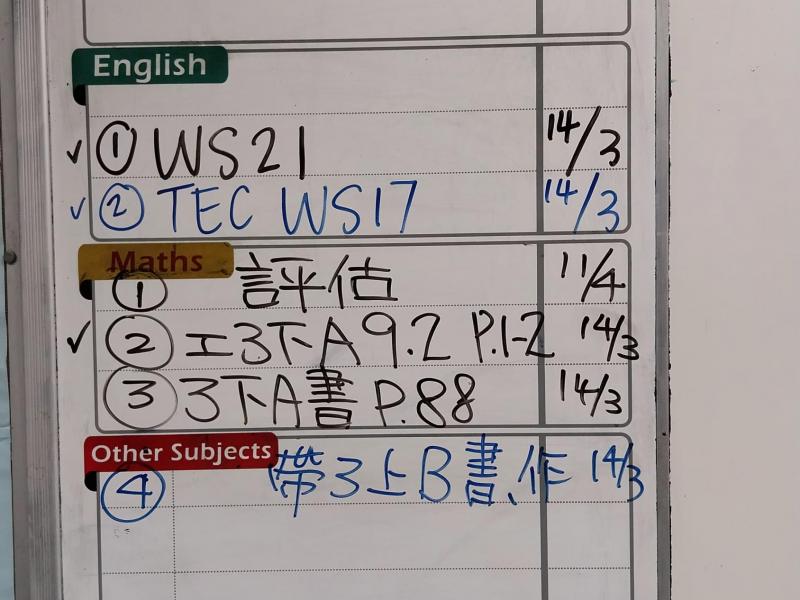 English
✓ ① WS21 14/3
✓ ② TEC WS17 14/3
Maths
① 評估 11/4
✓ ② 工3下A 9.2 P.1-2 14/3
③ 3下A書 P.88 14/3
Other Subjects
④ 帶3上B書、作 14/3